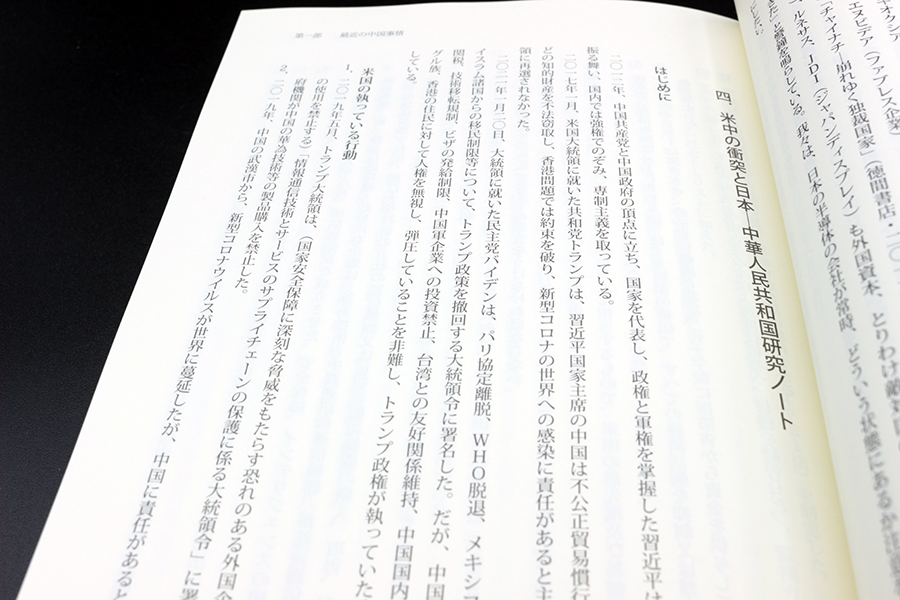 ヤオクシア
エヌビデア（ファブレス企業）
『チャイナ 崩れゆく独裁国家』（徳間書店・二〇
ルネサス、JDI（ジャパンディスプレイ）も外国資本、とりわけ
と警鐘を鳴らしている。我々は、日本の半導体の会社が常時、どういう状態にあるか
四．米中の衝突と日本―中華人民共和国研究ノート
はじめに
二〇一二年、中国共産党と中国政府の頂点に立ち、国家を代表し、政権と軍権を掌握した習近平は
振る舞い、国内では強権でのぞみ、専制主義を取っている。
二〇一七年一月、米国大統領に就いた共和党トランプは、習近平国家主席の中国は不公正貿易慣行
どの知的財産を不法窃取し、香港問題では約束を破り、新型コロナの世界への感染に責任があると主
領に再選されなかった。
二〇二一年一月二〇日、大統領に就いた民主党バイデンは、パリ協定離脱、WHO脱退、メキシコ
イスラム諸国からの移民制限等について、トランプ政策を撤回する大統領令に署名した。だが、中国
関税、技術移転規制、ビザの発給制限、中国軍企業への投資禁止、台湾との友好関係維持、中国国内
グル族、香港の住民に対して人権を無視し、弾圧していることを非難し、トランプ政権が執っていた
している。
米国の執っている行動
1、二〇一九年五月、トランプ大統領は、（国家安全保障に深刻な脅威をもたらす恐れのある外国企
の使用を禁止する）「情報通信技術とサービスのサプライチェーンの保護に係る大統領令」に署
府機関が中国の華為技術等の製品購入を禁止した。
2、二〇一九年、中国の武漢市から、新型コロナウイルスが世界に蔓延したが、中国に責任があると
第一部　最近の中国事情